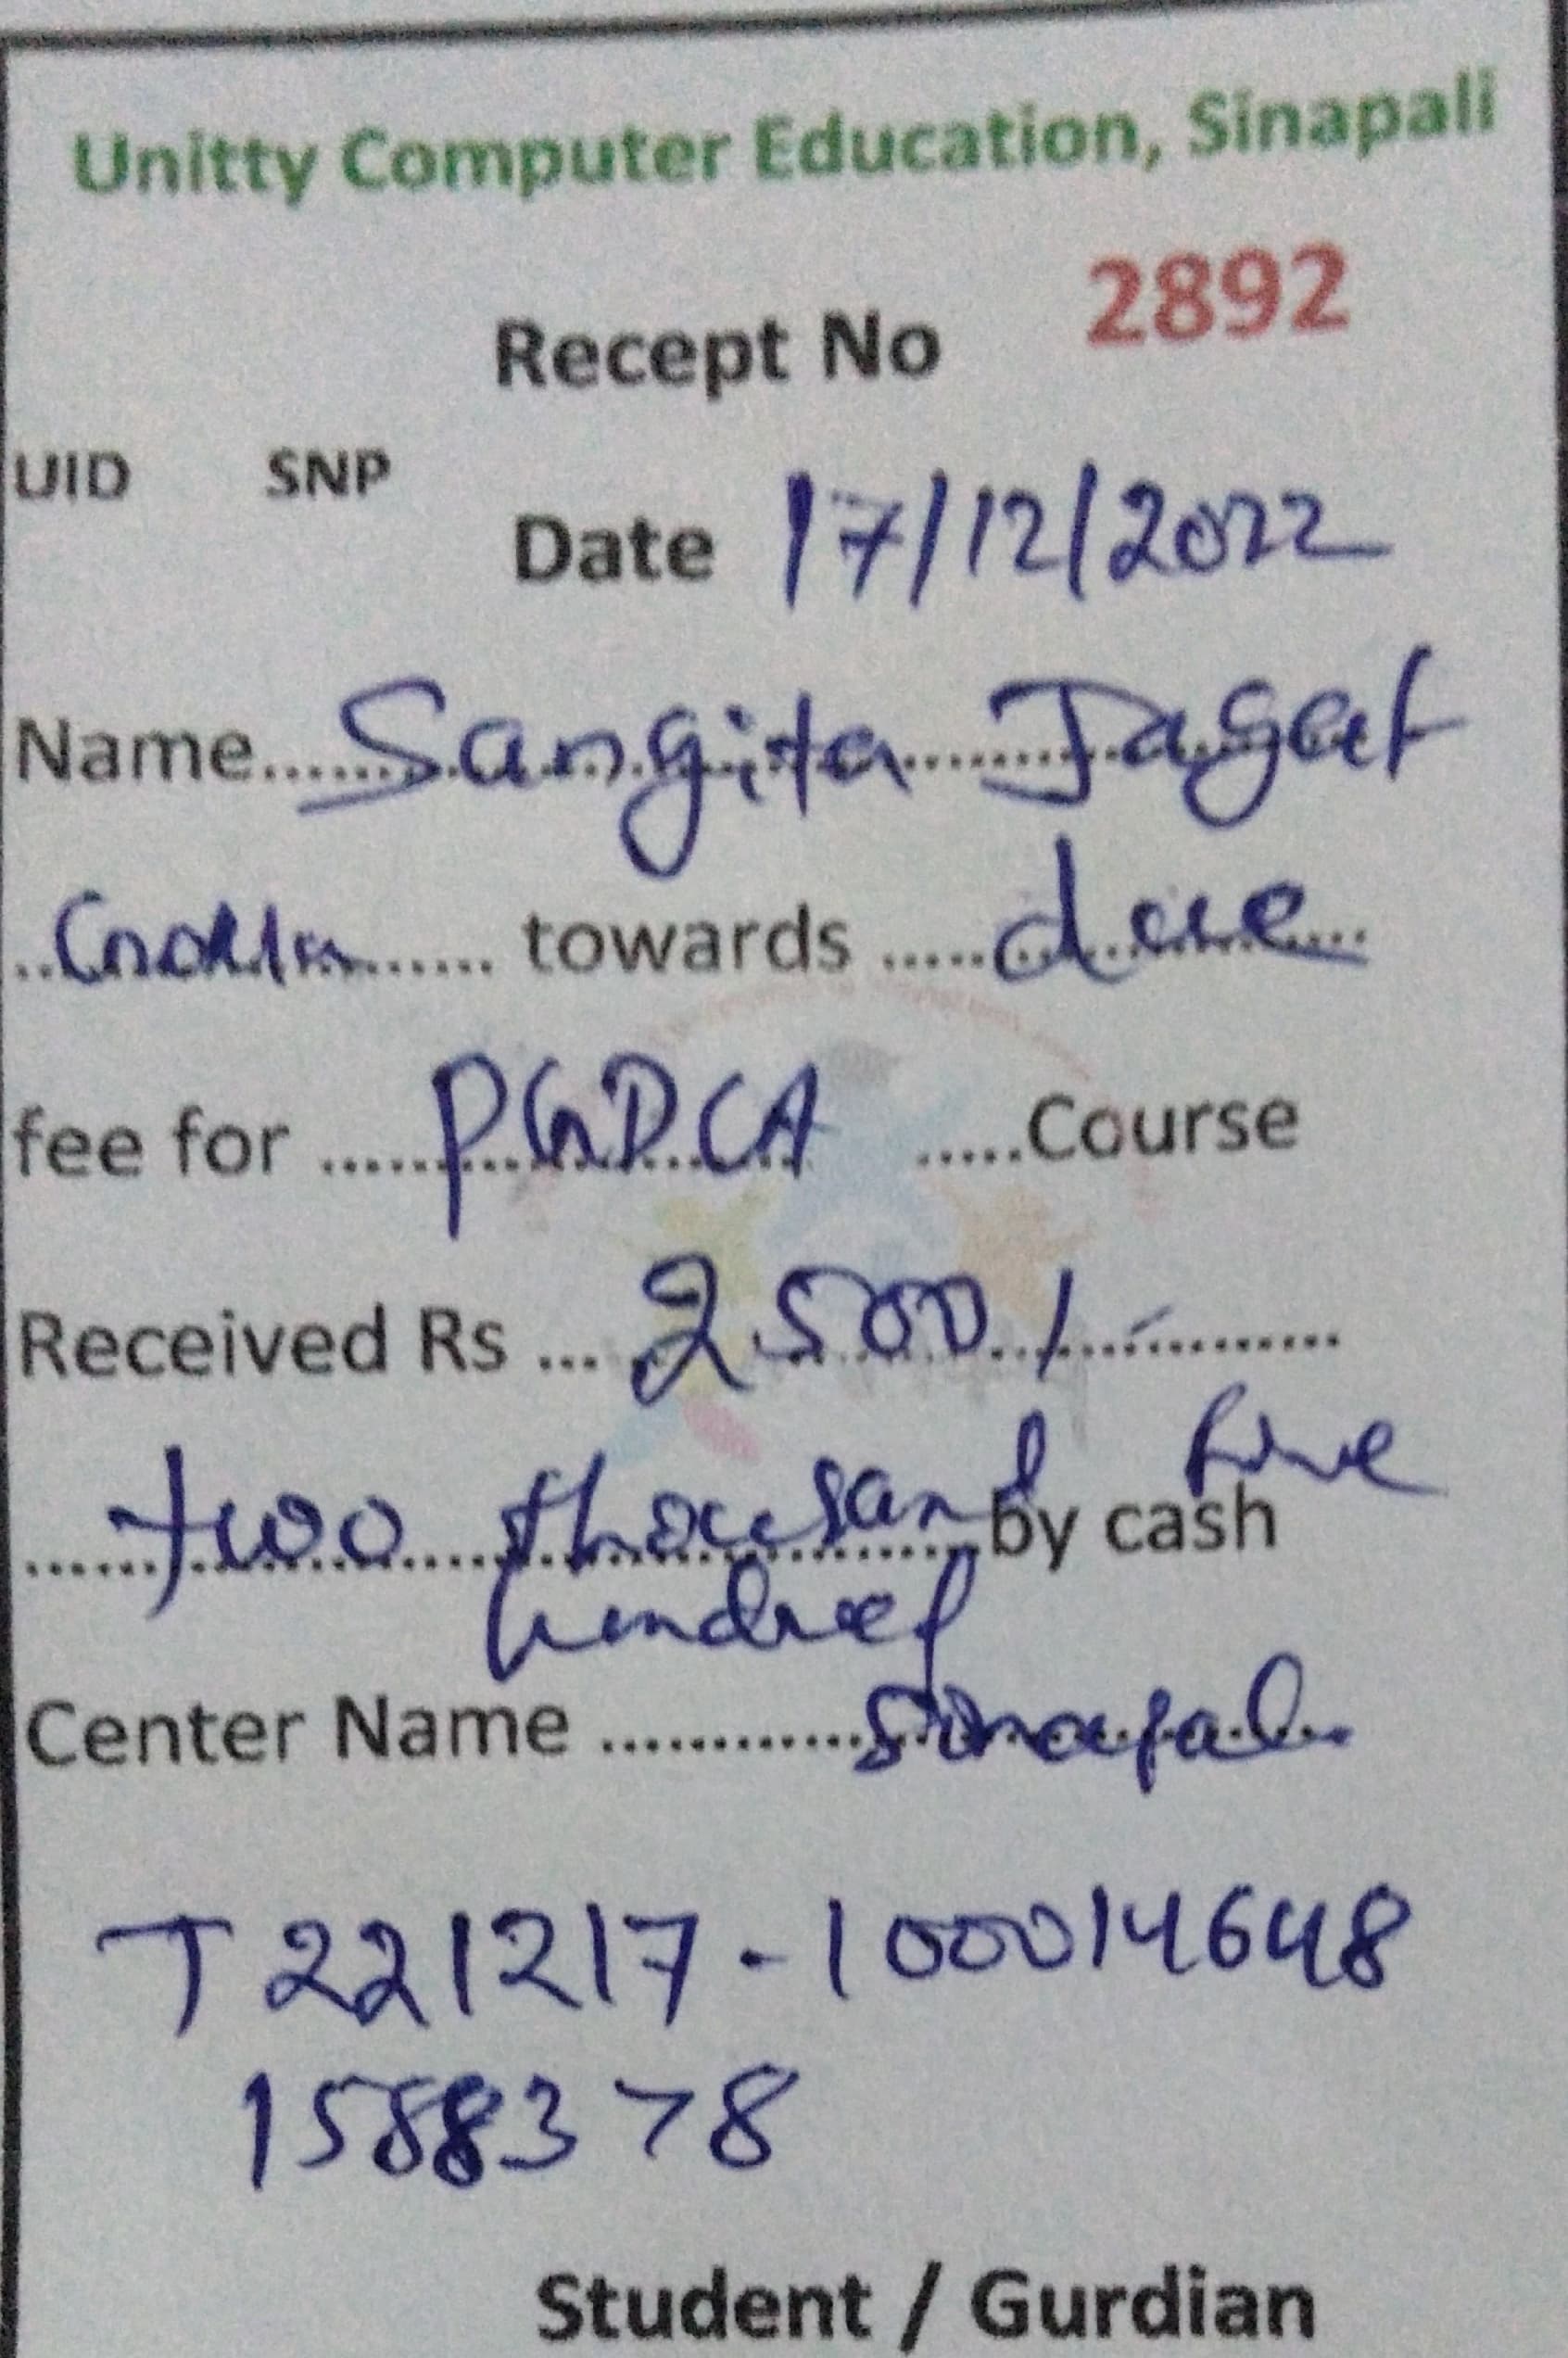 Unitty Computer Education, Sinapali
Recept No 2892
UID SNP
Date 17/12/2022
Name...... Sangita Jagat
.......... towards ..... due
fee for ..... PGDCA .....Course
Received Rs ... 2500/-
two thousand five
by cash
hundred
Center Name ............ Sinapali
T221217-1000014648
1588378
Student / Gurdian